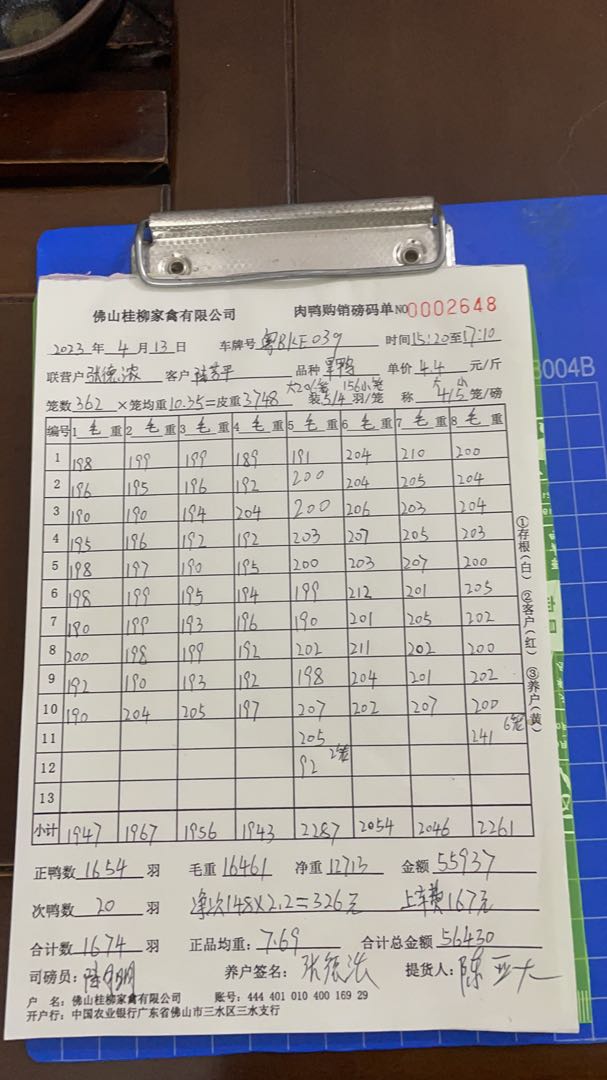 佛山桂柳家禽有限公司 肉鸭购销磅码单 NO 0002648
2023 年 4 月 13 日 车牌号 粤BKF039 时间 15:20 至 17:10
联营户 张德浓 客户 平 品种 单价 4.4 元/斤
笼数 362 ×笼均重 10.35 =皮重 3748 装 5/4 羽/笼 称 4/5 笼/磅
大 小
编号 1 毛重 2 毛重 3 毛重 4 毛重 5 毛重 6 毛重 7 毛重 8 毛重
1 198 199 199 189 191 204 210 200
2 196 195 196 192 200 204 205 204
3 190 190 194 204 200 206 203 204
4 195 196 192 192 203 207 205 203
5 198 197 190 195 200 203 207 200
6 198 199 195 194 199 212 201 205
7 190 199 193 196 190 201 205 202
8 200 198 199 192 202 211 202 200
9 192 190 193 192 198 204 201 202
10 190 204 205 197 207 202 207 200
11 205 241 6笼
12 92 2笼
13
小计 1947 1967 1956 1943 2287 2054 2046 2261
①存根(白) ②客户(红) ③养户(黄)
正鸭数 1654 羽 毛重 16461 净重 12713 金额 55937
次鸭数 20 羽 净次148×2.2=326元 上车费167元
合计数 1674 羽 正品均重: 7.69 合计总金额 56430
司磅员: 养户签名: 张德浓 提货人: 陈亚大
户 名: 佛山桂柳家禽有限公司 账号: 444 401 010 400 169 29
开户行: 中国农业银行广东省佛山市三水区三水支行
3004B